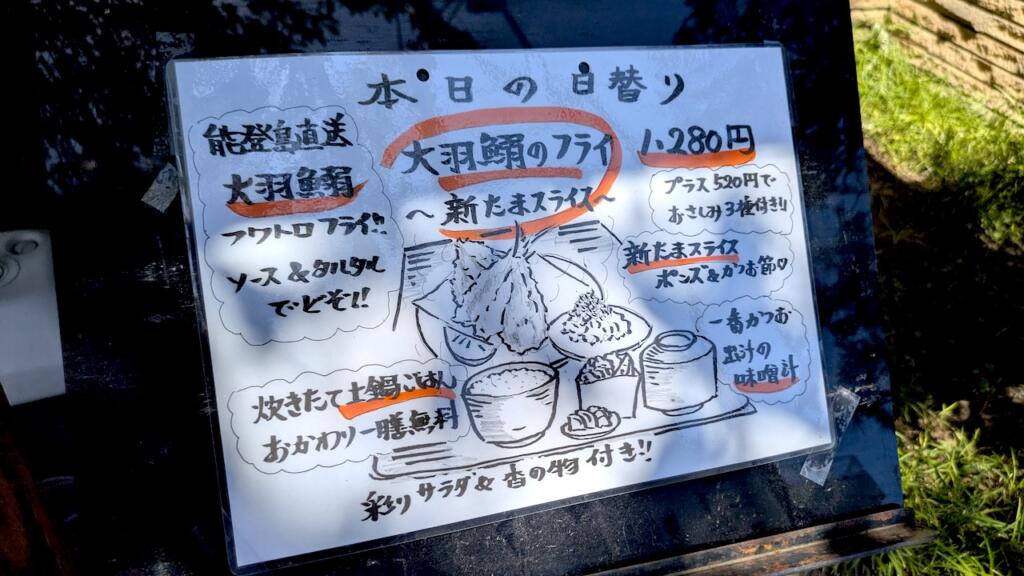 本日の日替り
能登島直送
大羽鰯
フワトロフライ!!
ソース&タルタル
でどぞ!!
大羽鰯のフライ
～新たまスライス～
1.280円
プラス520円で
おさしみ3種付き!!
新たまスライス
ポンズ&かつお節♡
一番かつお
出汁の
味噌汁
炊きたて土鍋ごはん
おかわり一膳無料
彩りサラダ&香の物付き!!